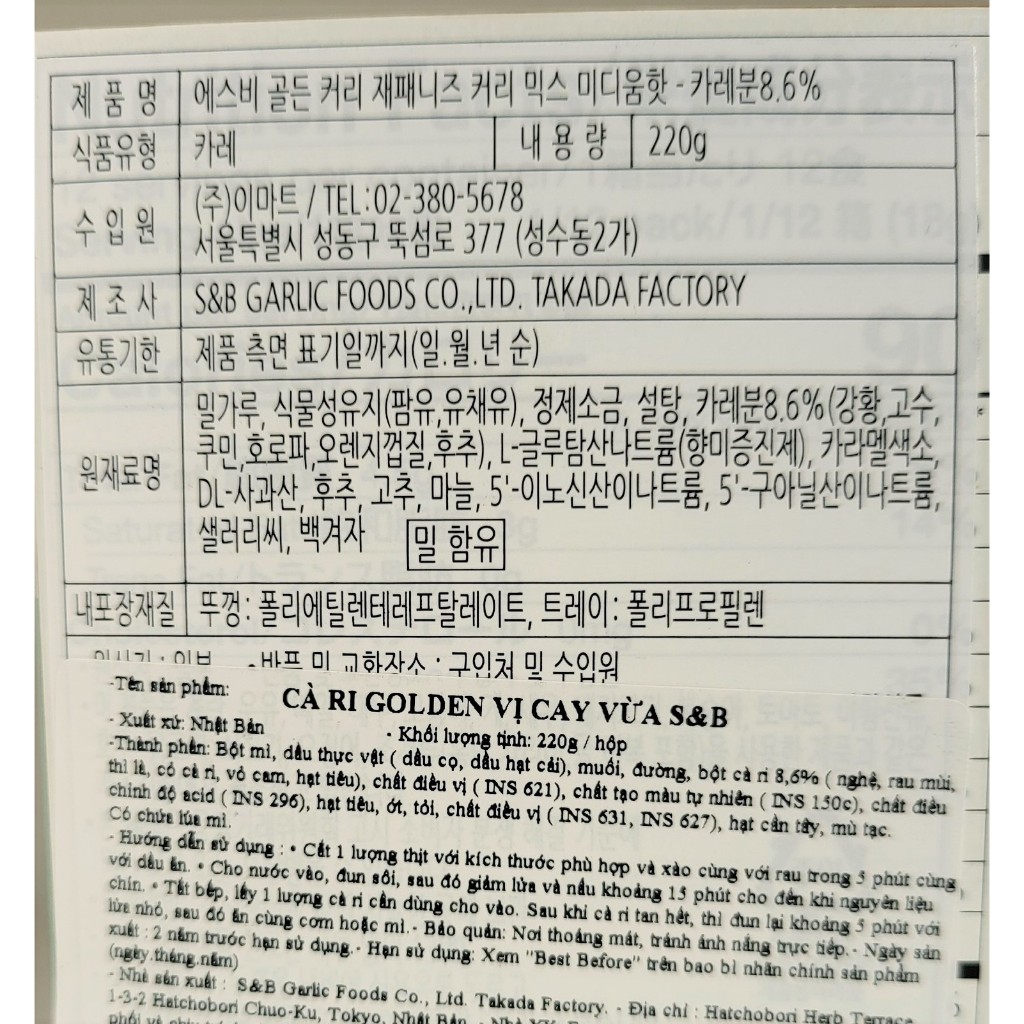 제 품 명 에스비 골든 커리 재패니즈 커리 믹스 미디움핫 - 카레분8.6%
식품유형 카레 내 용 량 220g
수 입 원 (주)이마트 / TEL:02-380-5678
서울특별시 성동구 뚝섬로 377 (성수동2가)
제 조 사 S&B GARLIC FOODS CO.,LTD. TAKADA FACTORY
유통기한 제품 측면 표기일까지(일.월.년 순)
원재료명 밀가루, 식물성유지(팜유,유채유), 정제소금, 설탕, 카레분8.6%(강황,고수,
쿠민,호로파,오렌지껍질,후추), L-글루탐산나트륨(향미증진제), 카라멜색소,
DL-사과산, 후추, 고추, 마늘, 5'-이노신산이나트륨, 5'-구아닐산이나트륨,
샐러리씨, 백겨자 밀 함유
내포장재질 뚜껑: 폴리에틸렌테레프탈레이트, 트레이: 폴리프로필렌
반품 및 교환장소 : 구입처 및 수입원
-Tên sản phẩm: CÀ RI GOLDEN VỊ CAY VỪA S&B
- Xuất xứ: Nhật Bản - Khối lượng tịnh: 220g / hộp
-Thành phần: Bột mì, dầu thực vật ( dầu cọ, dầu hạt cải), muối, đường, bột cà ri 8,6% ( nghệ, rau mùi,
thì là, cỏ cà ri, vỏ cam, hạt tiêu), chất điều vị ( INS 621), chất tạo màu tự nhiên ( INS 150c), chất điều
chỉnh độ acid ( INS 296), hạt tiêu, ớt, tỏi, chất điều vị ( INS 631, INS 627), hạt cần tây, mù tạc.
Có chứa lúa mì.
- Hướng dẫn sử dụng : • Cắt 1 lượng thịt với kích thước phù hợp và xào cùng với rau trong 5 phút cùng
với dầu ăn. • Cho nước vào, đun sôi, sau đó giảm lửa và nấu khoảng 15 phút cho đến khi nguyên liệu
chín. • Tắt bếp, lấy 1 lượng cà ri cần dùng cho vào. Sau khi cà ri tan hết, thì đun lại khoảng 5 phút với
lửa nhỏ, sau đó ăn cùng cơm hoặc mì.- Bảo quản: Nơi thoáng mát, tránh ánh nắng trực tiếp.- Ngày sản
xuất : 2 năm trước hạn sử dụng.- Hạn sử dụng: Xem "Best Before" trên bao bì nhãn chính sản phẩm
(ngày.tháng.năm)
- Nhà sản xuất : S&B Garlic Foods Co., Ltd. Takada Factory. - Địa chỉ : Hatchobori Herb Terrace
1-3-2 Hatchobori Chuo-Ku, Tokyo, Nhật Bản